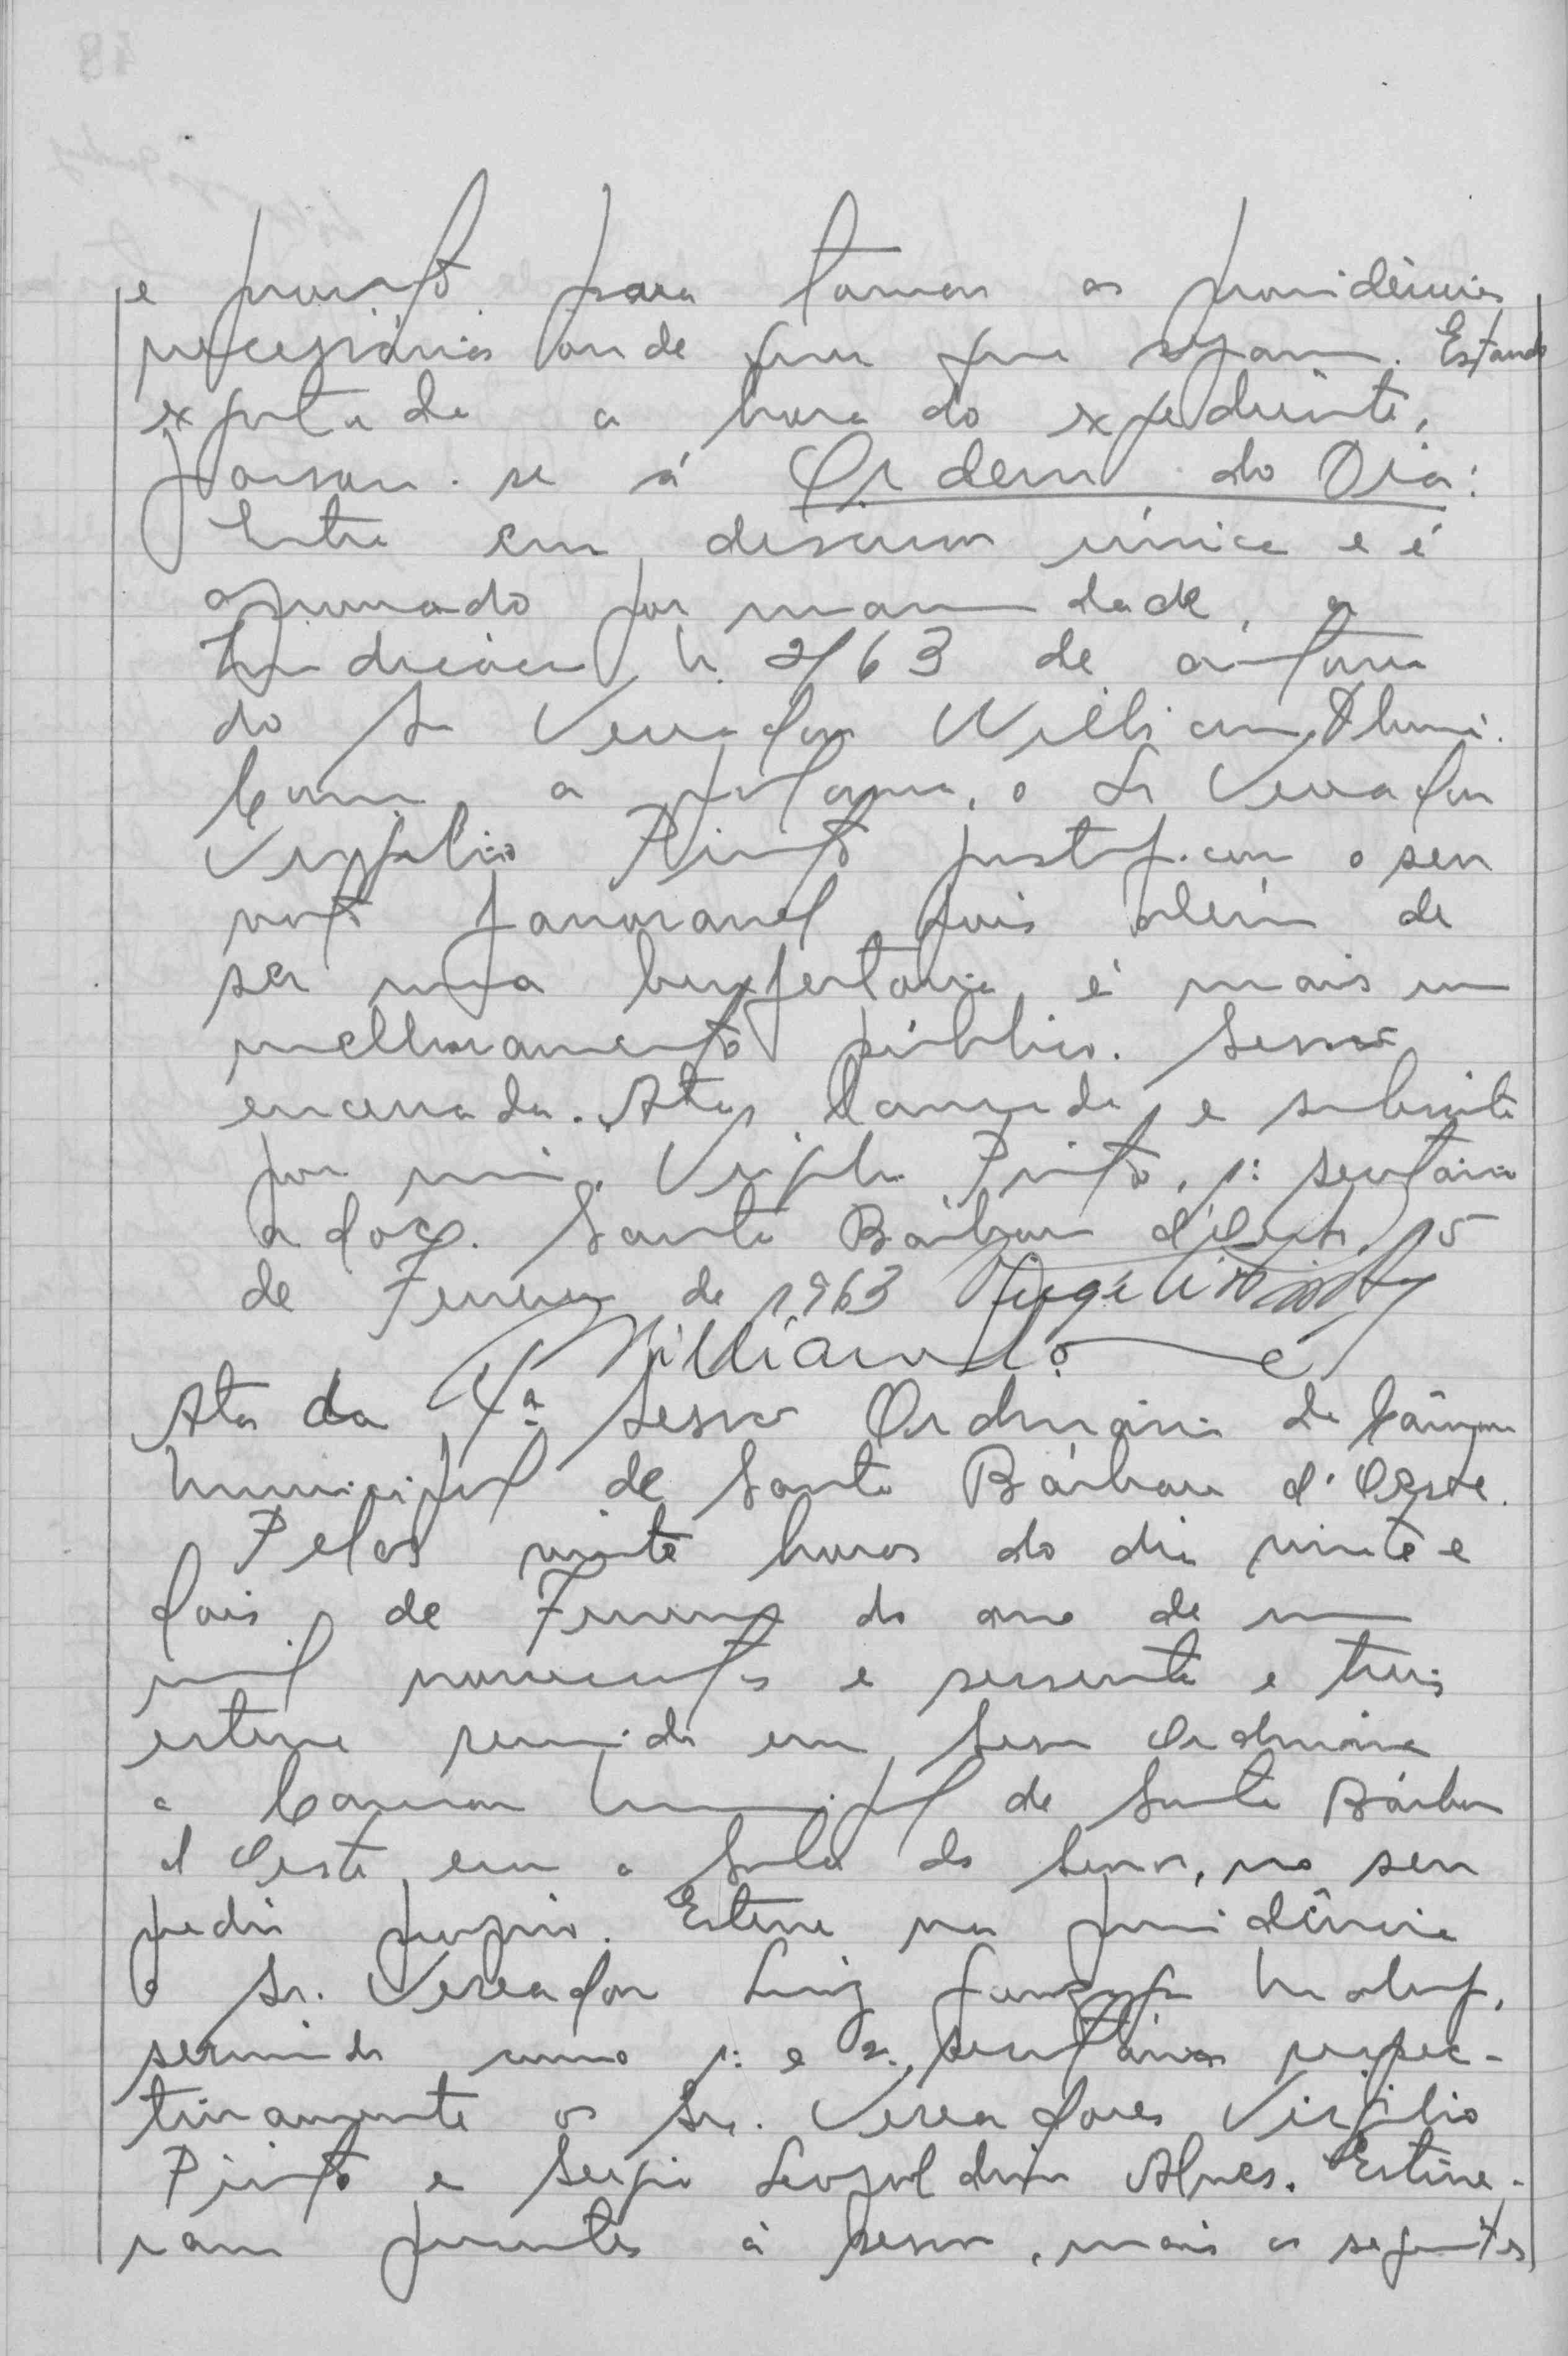 e pronto para tomar as providências
necessárias onde quer que sejam. Estando
exgotada a hora do expediente,
passou-se á Ordem do Dia:
Entra em discussão única e é
aprovado por unanimidade, a
Indicação n. 2/63 de autoria
do Sr Vereador William
Com a palavra, o Sr Vereador
Virgilio Pinto justificou o seu
voto favoravel pois além de
ser uma é mais um
melhoramento público. Sessão
encerrada. Ata lavrada e subscrita
por mim, Virgilio Pinto, 1º secretário
adoc. Santa Bárbara d'Oeste, 15
de Fevereiro de 1963 Virgilio Pinto
Ata da 4ª Sessão Ordinária da Câmara
Municipal de Santa Bárbara d'Oeste.
Pelas vinte horas do dia vinte e
dois de Fevereiro do ano de um
mil novecentos e sessenta e treis
esteve reunida em Sessão Ordinária
a Camara Municipal de Santa Bárbara
d'Oeste, em a Sala da Sessões, no seu
predio proprio. Esteve na presidência
o Sr. Vereador Luiz Gonzaga Maluf,
servindo como 1º e 2º secretários respec-
tivamente os Srs. Vereadores Virgilio
Pinto e Sergio Leopoldino Alves. Estive-
ram presentes á sessão, mais os seguintes